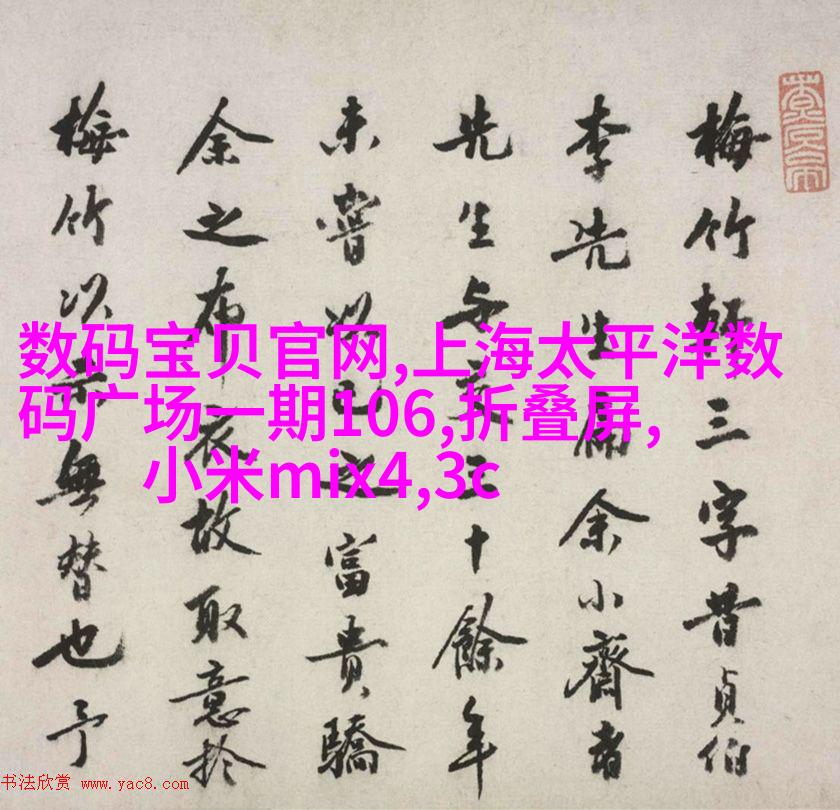 梅竹軒三字昔貞伯
李先生扁余小齋者
先生与交三十餘年
未嘗以己之富貴驕
余之布衣故取意於
梅竹以示無替也予
数码宝贝官网,上海太平洋数
码广场一期106,折叠屏,
小米mix4,3c
书法欣赏 www.yac8.com